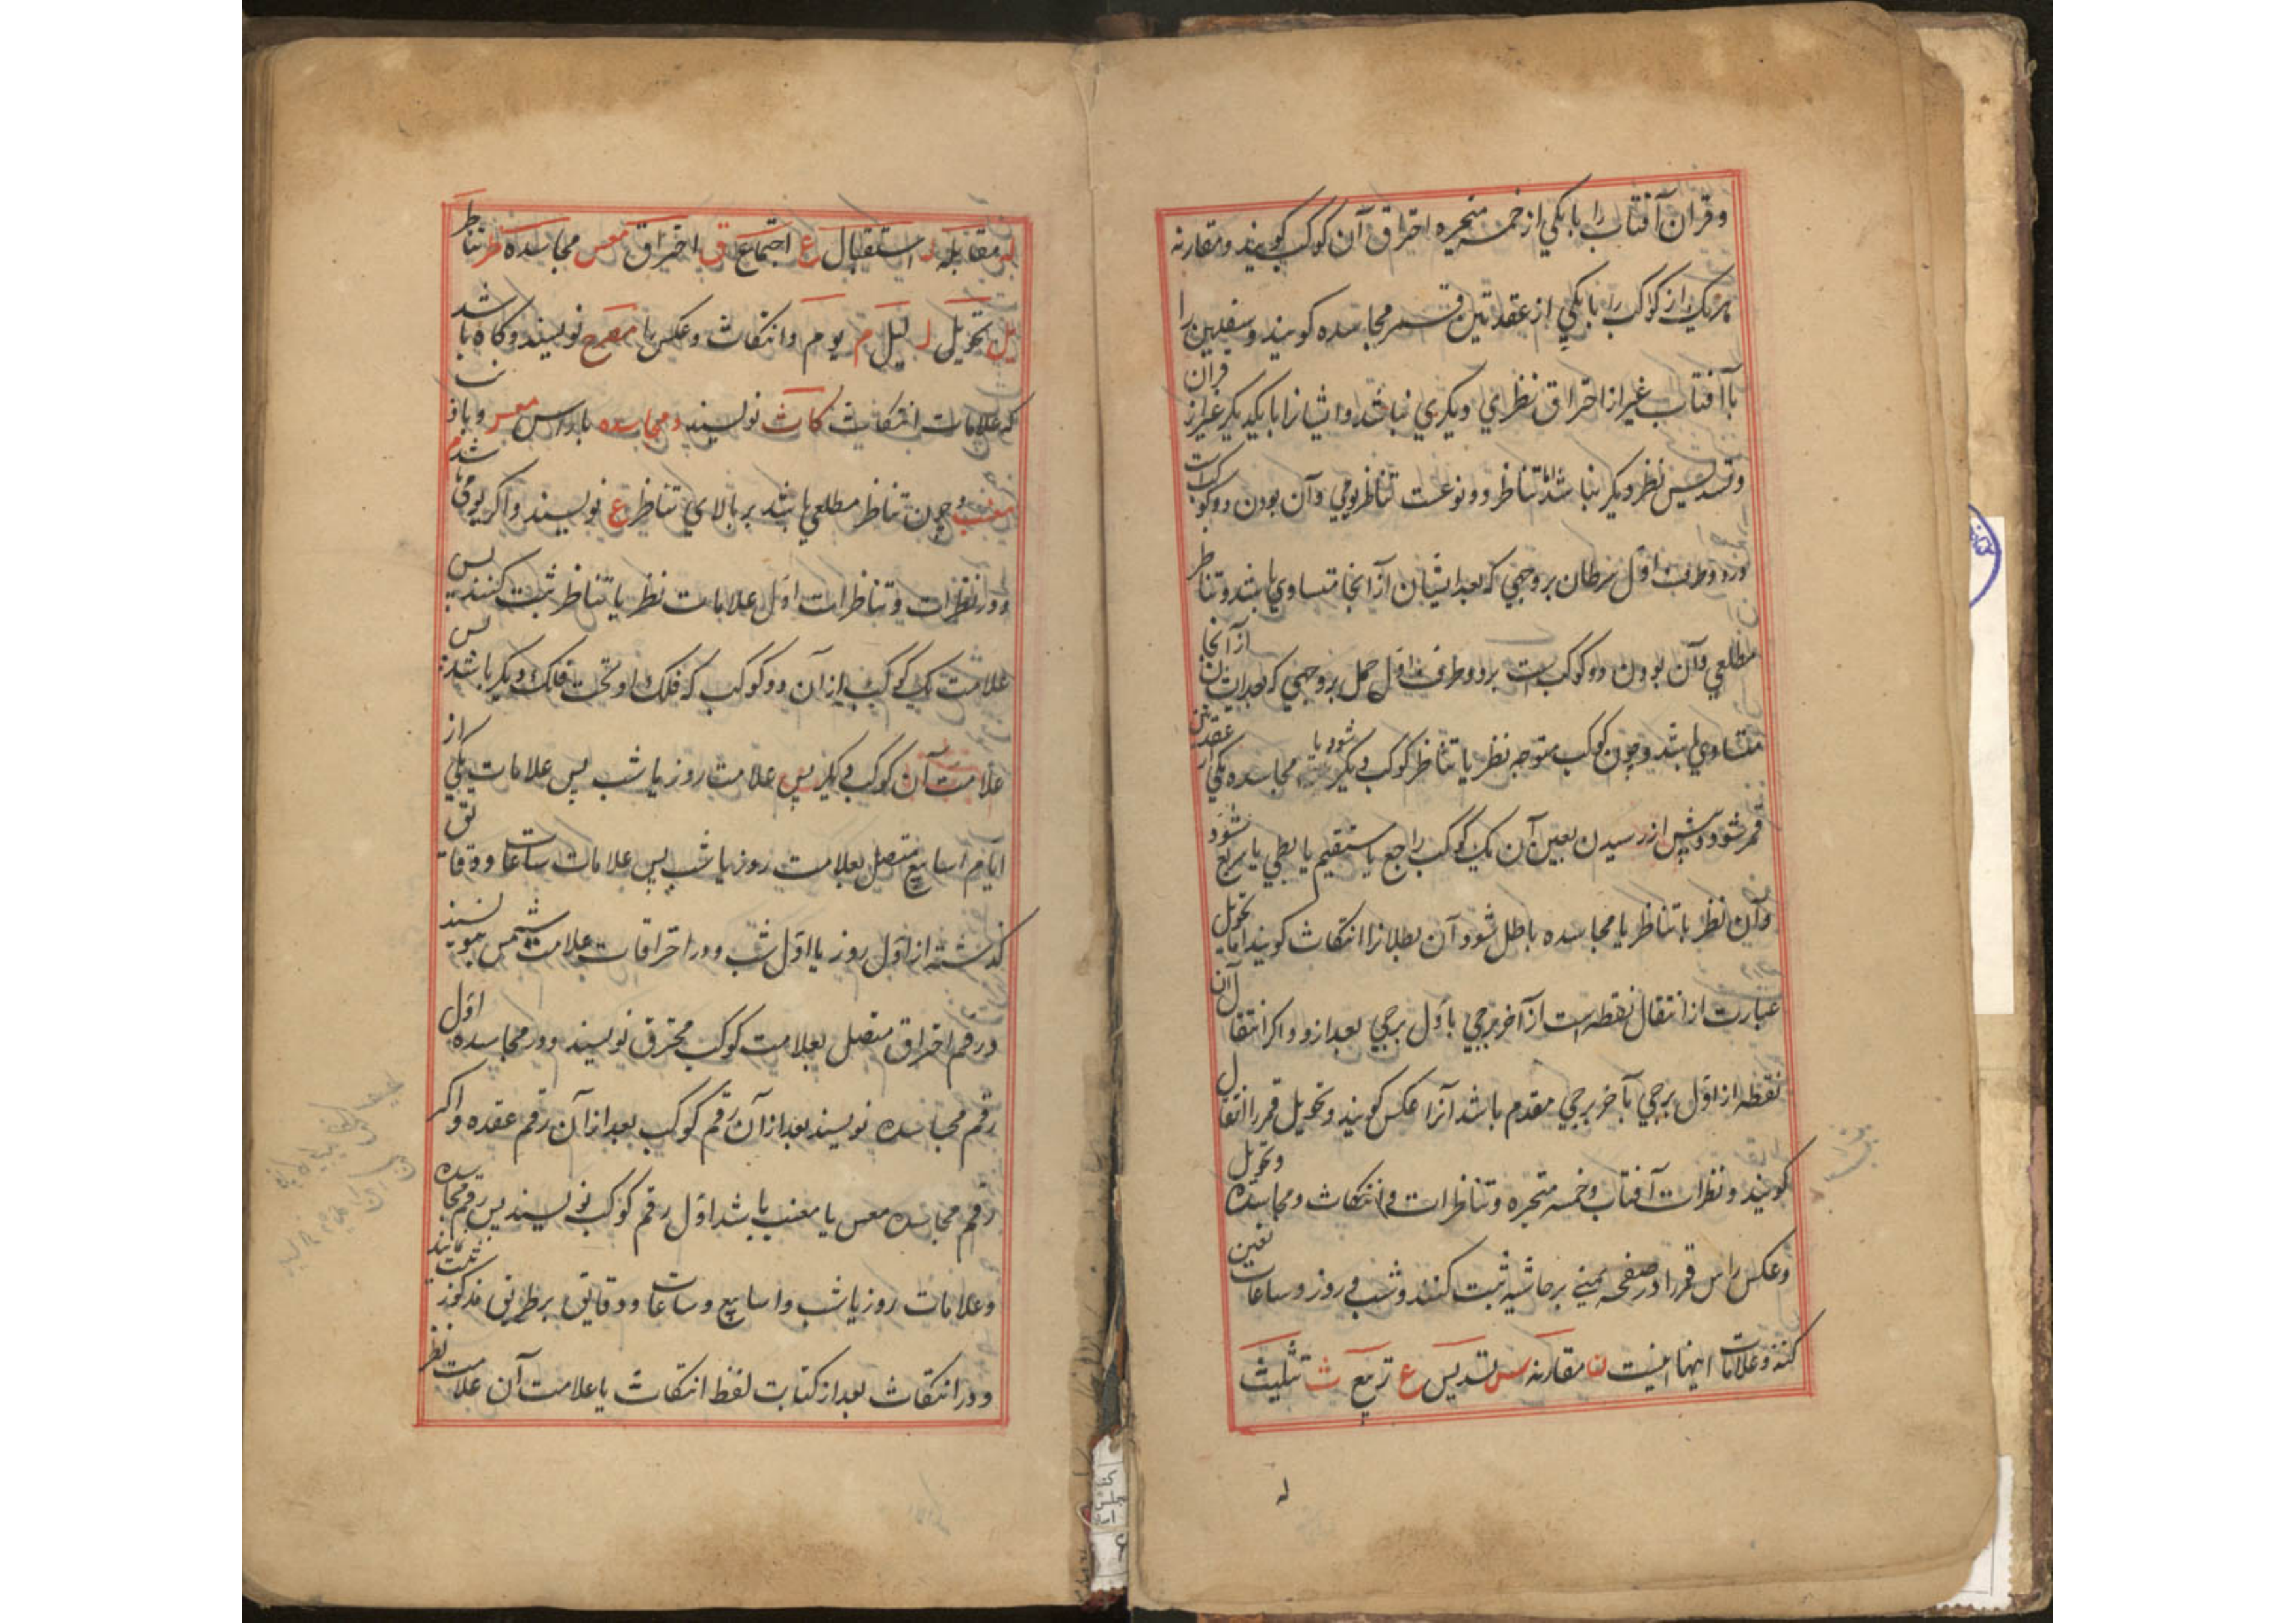 وقران آفتاب را با یکی از خمسه متحیره احتراق آن کوکب کویند ومقارنه
هریک از کواکب را با یکی از عقدتین قمر مجاسده کویند وسفلیین را
با آفتاب غیر از احتراق نظری دیکری نباشد وایشانرا با یکدیکر غیر از قران
وتسدیس نظر دیکر نباشد اما تناظر دو نوعست تناظر یومی وآن بودن دو کوکب است
در دو طرف اول سرطان بر وجهی که بعد ایشان از آنجا متساوی باشد وتناظر
مطلعی وآن بودن دو کوکب است بر دو طرف اول حمل بر وجهی که بعد ایشان از آنجا
متساوی باشد وچون کوکب متوجه نظر یا تناظر کوکب دیکر شود یا مجاسده یکی از عقدتین
قمر شود وپیش از رسیدن بعین آن یک کوکب راجع یا مستقیم یا بطی یا سریع شود
وآن نظر یا تناظر یا مجاسده باطل شود آن بطلانرا انتکاث کویند اما تحویل
عبارت از انتقال نقطه است از آخر برجی باول برجی بعد ازو واکر انتقال آن
نقطه از اول برجی بآخر برجی مقدم باشد آنرا عکس کویند وتحویل قمر را انتقال
کویند ونظرات آفتاب وخمسه متحیره وتناظرات وانتکاث ومجاسده وتحویل
وعکس راس قمر را در صفحه یمنی بر حاشیه ثبت کنند وشب وروز وساعات تعین
کنند وعلامات اینها اینست ن مقارنه س تسدیس ع تربیع ث تثلیث
له
له مقابله ل استقبال ع اجتماع ق احتراق معس مجاسده ظر تناظر
یل تحویل ل لیل م یوم وانتکاث وعکس را مصرح نویسند وکاه باشد
که علامات انتکاث کاث نویسند ومجاسده با راس معسر وبا ذنب
معنب وچون تناظر مطلعی باشد بر بالای تناظر ع نویسند واکر یومی باشد م
ودر نظرات وتناظرات اول علامات نظر یا تناظر ثبت کنند پس
علامت یک کوکب از آن دو کوکب که فلک او تحت فلک دیکر باشد پس
علامت آن کوکب دیکر پس علامت روز یا شب پس علامات یکی از
ایام اسابیع متصل بعلامت روز یا شب پس علامات ساعات ودقایق
کذشته از اول روز یا اول شب ودر احتراقات علامت شمس ننویسند
در رقم احتراق متصل بعلامت کوکب محترق نویسند ودر مجاسده اول
رقم مجاسده نویسند بعد از آن رقم کوکب بعد از آن رقم عقده واکر
رقم مجاسده معس یا معنب باشد اول رقم کوکب نویسند پس رقم مجاسده
وعلامات روز یا شب واسابیع وساعات ودقایق بر طریق مذکور ثبت نمایند
ودر انتکاث بعد از کتابت لفظ انتکاث یا علامت آن علامت نظر